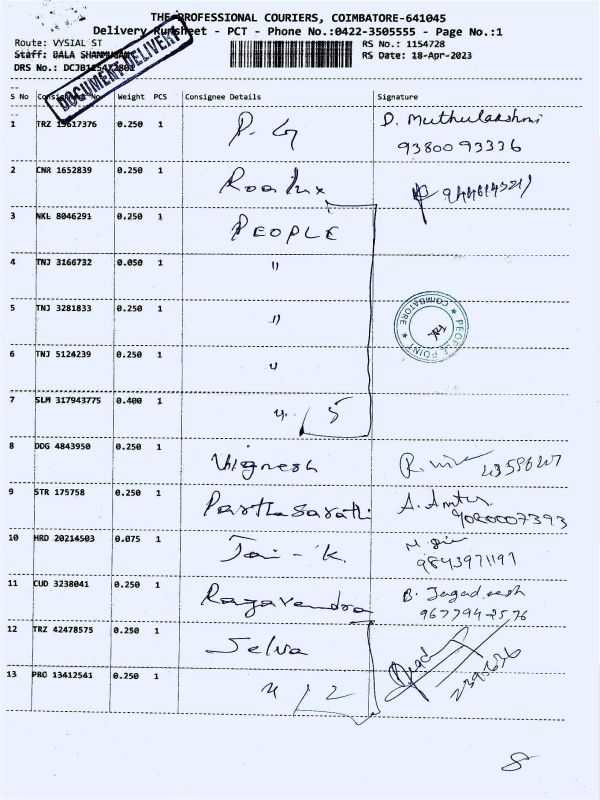 THE PROFESSIONAL COURIERS, COIMBATORE-641045
Delivery Runsheet - PCT - Phone No.:0422-3505555 - Page No.:1
Route: VYSIAL ST
RS No.: 1154728
Staff: BALA SHANMUGAM
RS Date: 18-Apr-2023
DRS No.:
DOCUMENT DELIVERY
S No Consignment No Weight PCS Consignee Details Signature
1 TRZ 0.250 1 P. G D. Muthulakshmi
9380093336
2 CNR 1652839 0.250 1
3 NKL 8046291 0.250 1 PEOPLE
4 TNJ 3166732 0.050 1 "
5 TNJ 3281833 0.250 1 "
PEOPLE POINT ★ COIMBATORE ★
6 TNJ 5124239 0.250 1 "
7 SLM 317943775 0.400 1 " 5
8 DDG 4843950 0.250 1 Vignesh
9 STR 175758 0.250 1 Parthasarathi A.
10 HRD 20214503 0.075 1 Jai - K.
9843971191
11 CUD 3238041 0.250 1 Ragavendra B. Jagadeesh
9677942576
12 TRZ 42478575 0.250 1 Selva
13 PRO 13412541 0.250 1 " 2
8